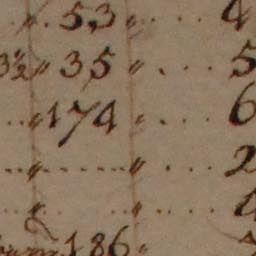 " 53 " .... 4
3½ " 35 " .... 5
.... " 174 " .... 6
.... " ........ " .... 2
.... " ........ " .... 4
186 "